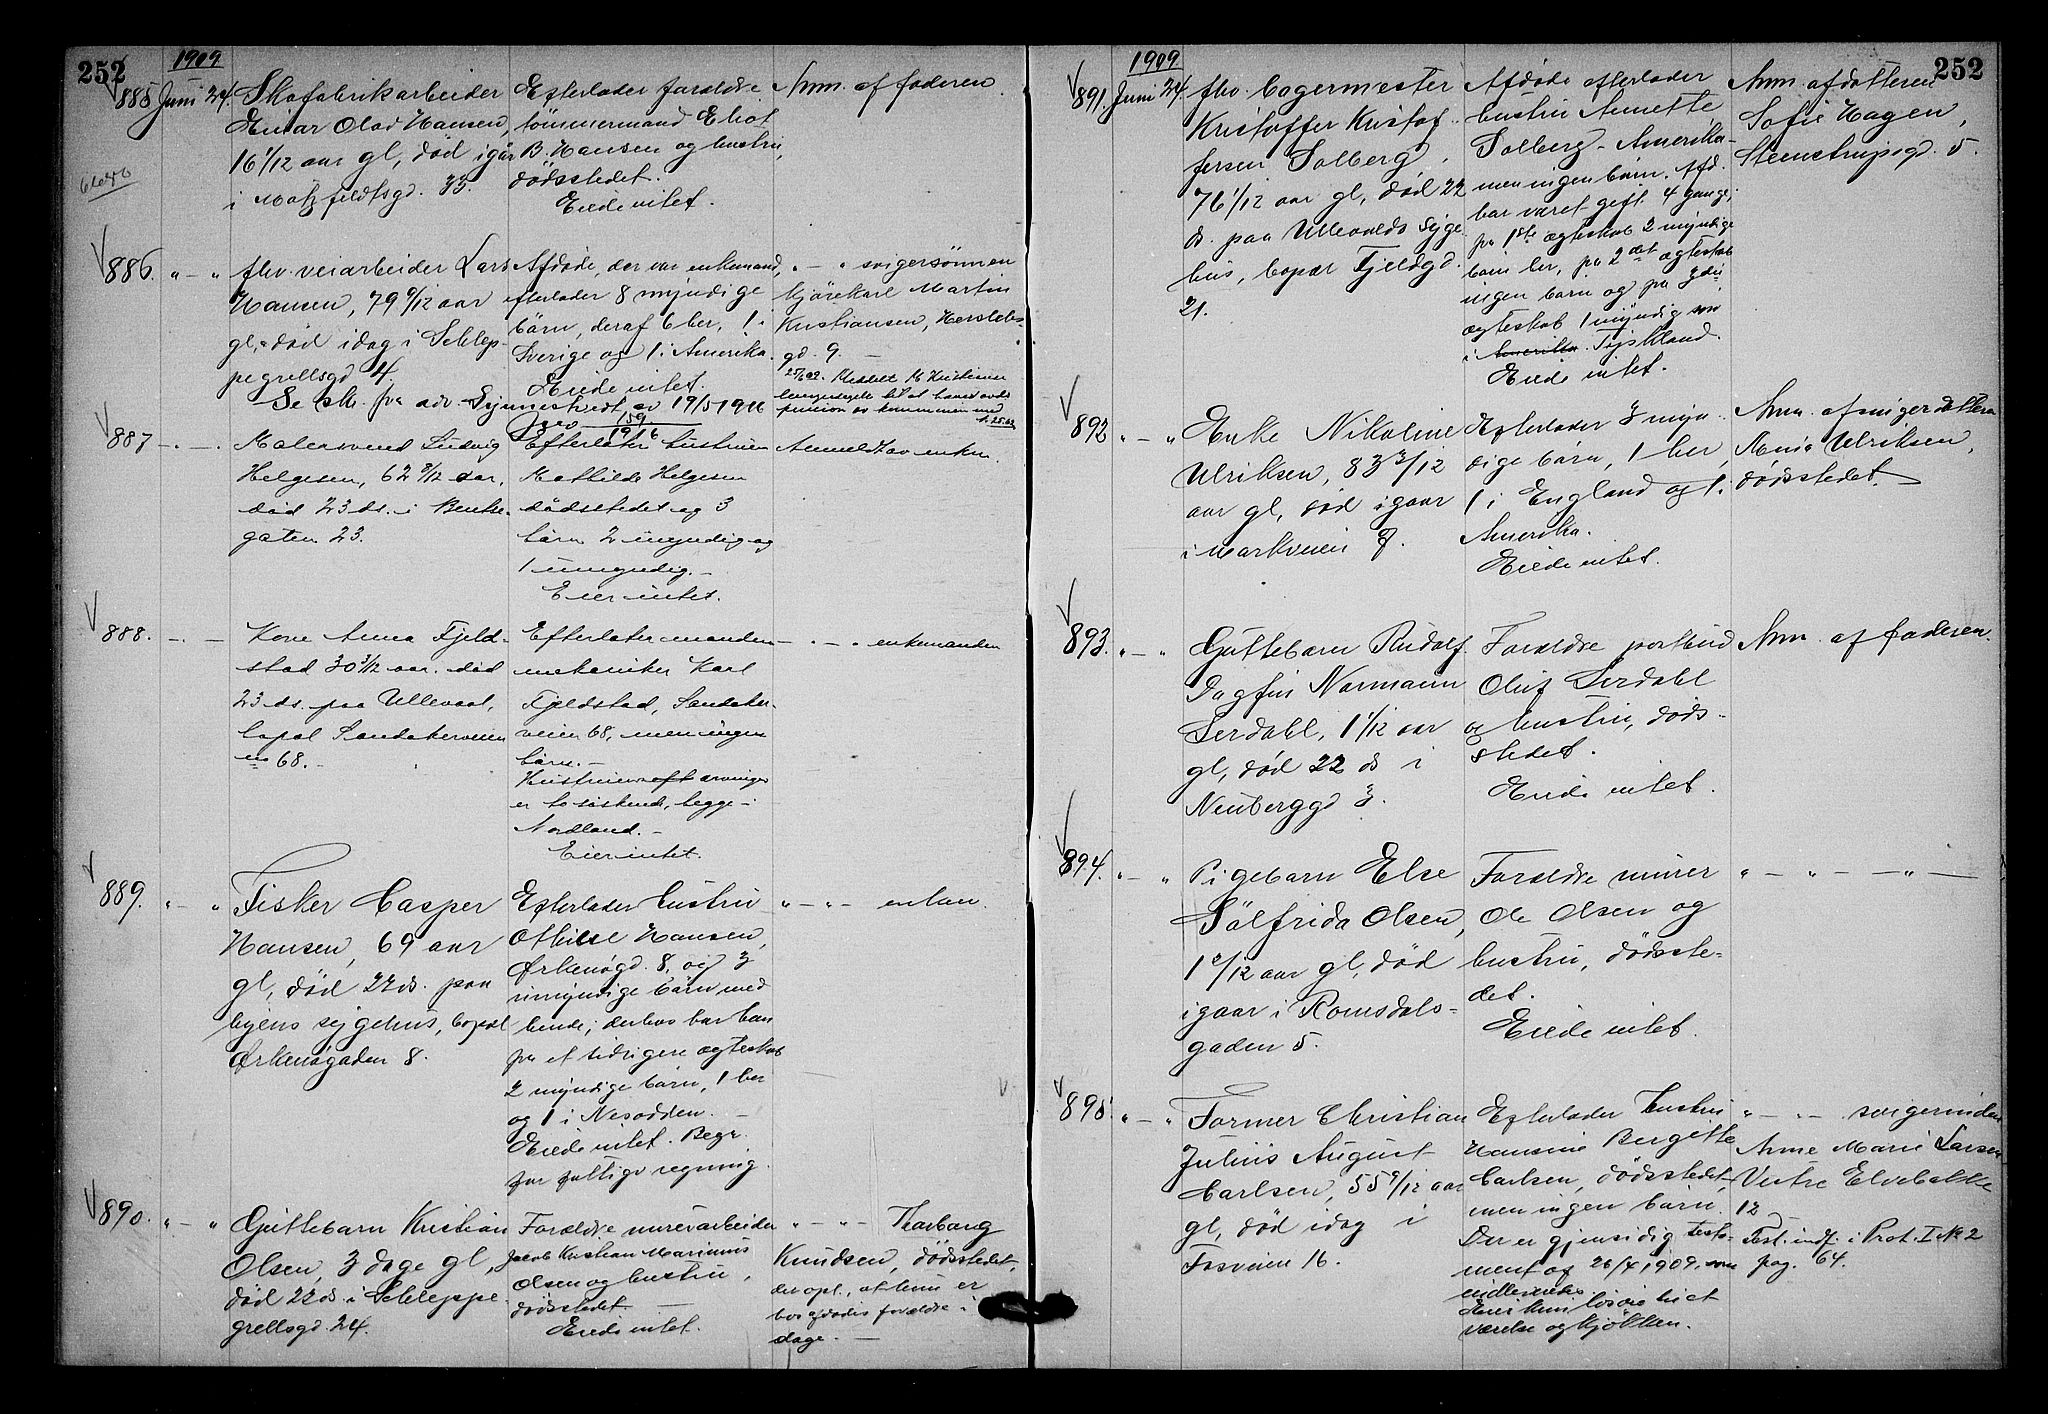 252
1909
885 Juni 24. Skofabrikarbeider
Einar Olad Hansen,
16 1/12 aar gl, død igår
i Motzfeldtsgd. 35.
6646
Efterlader forældre
tömmermand
B. Hansen og hustru,
dödsstedet.
Eiede intet.
Anm. af faderen.
886. " - " fhv. veiarbeider Lars
Hansen, 79 9/12 aar
gl, död idag i Schlep-
pegrellsgd 4.
Afdöde, der var enkemand,
efterlader 8 myndige
börn, deraf 6 her, 1 i
Sverige og 1 i Amerika.
Eiede intet.
" - " svigersönnen
kjörekarl Martin
Kristiansen, Herslebs-
gd. 9. -
Se skr. fra adv. av 19/5 1916
59
1916
887 - . - . Malersvend Ludvig
Helgesen, 62 8/12 aar,
död 23 ds. i Bentse-
gaten 23.
Efterlater hustruen
Mathilde Helgesen
dödsstedet og 3
börn 2 myndig og
1 umyndig. -
Eier intet.
Anmeldt av enken.
888. - . - Kone Anna Fjeld-
stad 30 3/12 aar. död
23 ds. paa Ullevaal,
bopæl Sandakerveien
no 68. -
Efterlater manden
mekaniker Karl
Fjeldstad, Sandaker-
veien 68, men ingen
börn. -
Hustruens arvinger
er to söskend, begge i
Nordland. -
Eier intet.
- . - . enkemanden
889. " - " Fisker Casper
Hansen, 69 aar
gl, död 22 ds. paa
byens sygehus, bopæl
Ørkenögaden 8.
Efterlader hustru
Othilie Hansen,
Ørkenögd. 8, og 3
umyndige börn med
hende; derhos har han
fra et tidligere ægteskab
2 myndige börn, 1 her
og 1 i Nesodden. -
Eiede intet. Begr.
for fattigv regning.
" - " - enken.
890. " - " Guttebarn Kristian
Olsen, 3 dage gl,
död 22 ds. i Schleppe-
grellsgd. 24.
Forældre murerarbeider
Jacob Kristian Marinius
Olsen og hustru,
dödsstedet. -
Eiede intet.
" - " - Thorborg
Knudsen, dödsstedet,
der opl., at hun er
hos afdödes forældre i
dage. -
252
1909
891. Juni 24. fhv. bagermester
Kristoffer Kristof-
fersen Solberg,
76 1/12 aar gl, död 22
ds. paa Ullevaals syge-
hus, bopæl Fjeldgd.
21.
Afdöde efterlader
hustru Annette
Solberg - Amerika -
men ingen börn. Afd.
har været gift 4 gange;
fra 1ste ægteskab 2 myndige
börn her, fra 2det ægteskab
ingen börn og fra 3die
ægteskab 1 myndig sön
i Amerika. Tyskland.
Eiede intet.
Anm. af datteren
Sofie Hagen,
Steenstrupsgd. 5.
892 " - " Enke Nikoline
Ulriksen, 83 3/12
aar gl, död igaar
i Markveien 8.
Efterlader 3 myn-
dige börn, 1 her,
1 i England og 1 i
Amerika.
Eiede intet.
Anm. af svigerdatteren
Ulriksen,
dödsstedet. -
893. " - " Guttebarn Rudolf
Dagfin Normann
Serdahl, 1 1/12 aar
gl, död 22 ds i
Neuberggd 3.
Forældre postbud
Oluf Serdahl
og hustru, döds-
stedet.
Eiede intet.
Anm. af faderen.
894. " - " Pigebarn Else
Sölfrida Olsen,
1 2/12 aar gl, död
igaar i Romsdals-
gaden 5.
Forældre murer
Ole Olsen og
hustru, dödsste-
det.
Eiede intet.
" - " - - " -
895 " - " Former Christian
Julius August
Carlsen, 55 9/12 aar
gl, död idag i
Fosveien 16.
Efterlader hustru
Hansine Bergitte
Carlsen, dödsstedet,
men ingen börn.
Der er gjensidig testa-
ment af 26/4 1909, som
indleveredes.
Eier kun lösöre til et
værelse og kjökken.
" - " - svigerinden
Anne Marie Larsen
Vestre Elvebakke
12
Test. indf. i Prot. I № 2
pag. 64.